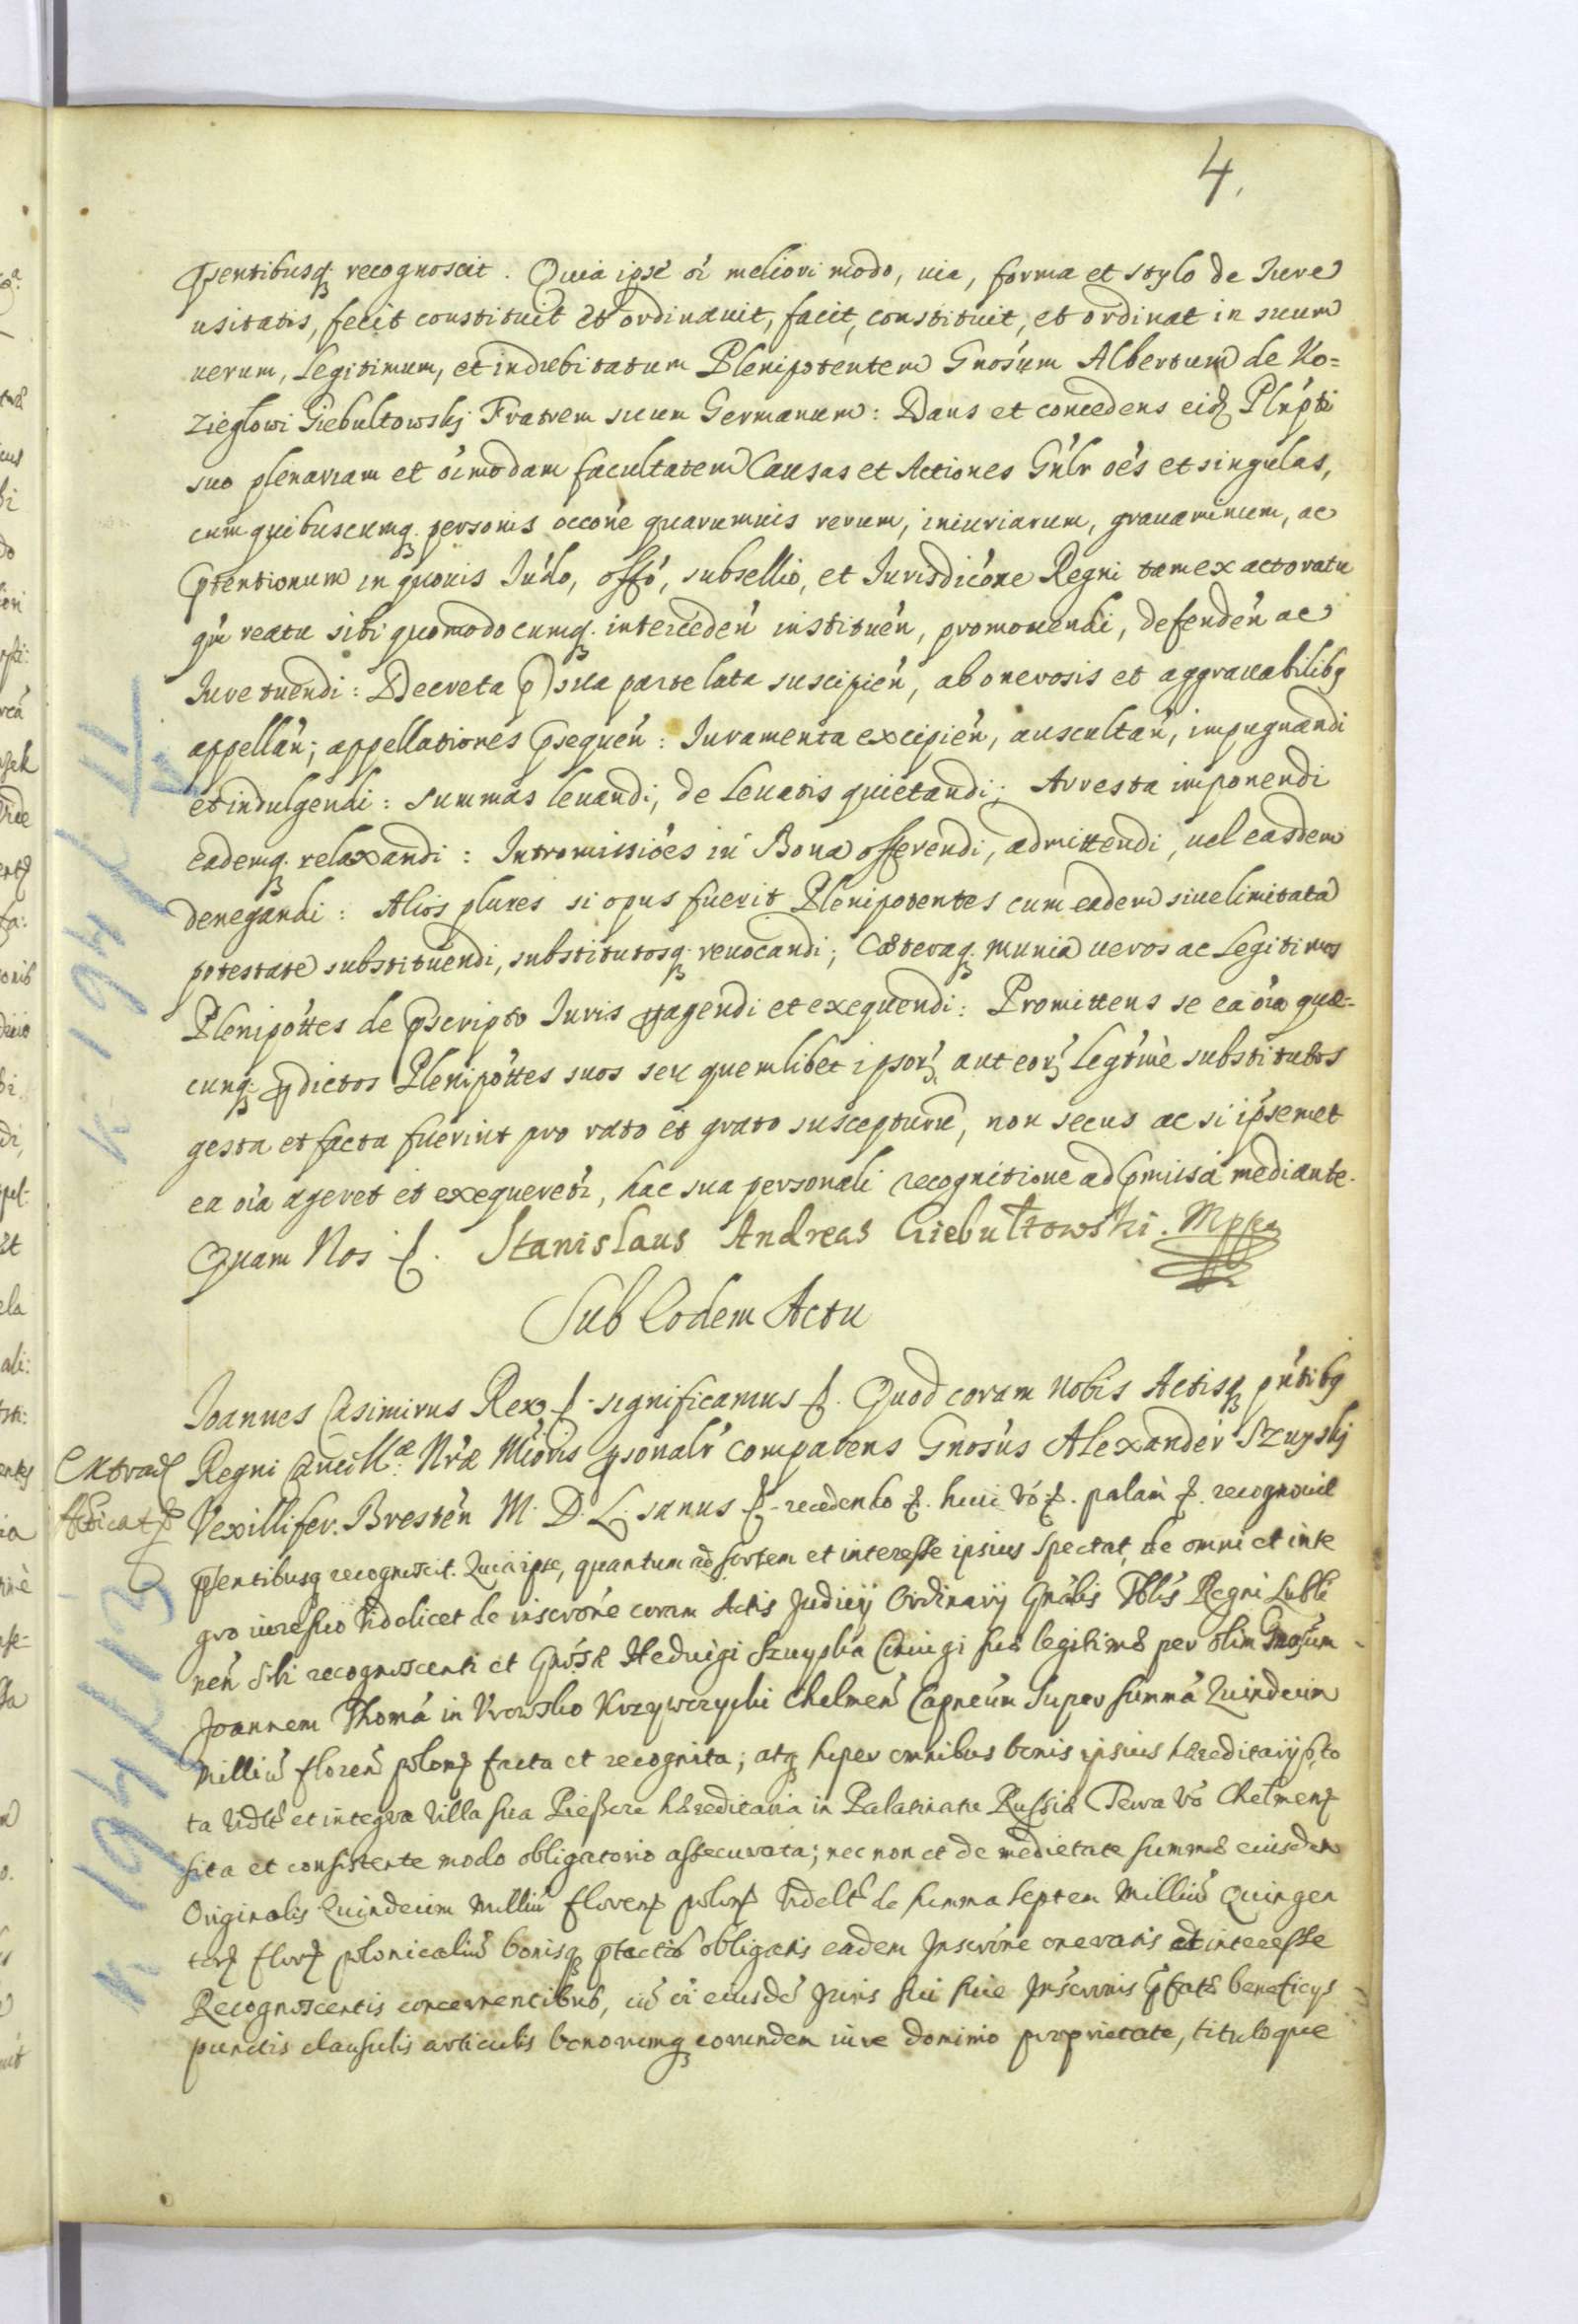 4.
Psentibusq; recognoscit. Quia ipse oi meliori modo, uia, forma et stylo de Iure
usitatis, fecit constituit et ordinauit, facit, constituit, et ordinat in suum
uerum, Legitimum, et indubitatum Plenipotentem Gnosum Albertum de Ko=
zieglowi Giebultowskj Fratrem suum Germanum: Dans et concedens eid Plnpti
suo plenariam et oimodam facultatem Causas et Actiones Gnlr oes et singulas,
cum quibuscumq; personis occone quarumuis rerum, iniuriarum, grauaminum, ac
Ptentionum in quouis Iudo, offo, subsellio, et Iurisdicone Regni tam ex actoratu
qm reatu sibi quomodocumq; interceden instituen, promouendi, defenden ac
Iure tuendi: Decreta p sua parte lata suscipien, ab onerosis et aggrauabilibq
appellan; appellationes Psequen: Iuramenta excipien, auscultan, impugnandi
et indulgendi: summas leuandi, de Leuatis quietandi; Arresta imponendi
eademq; relaxandi: Intromissioes in Bona offerendi, admittendi, uel easdem
denegandi: Alios plures si opus fuerit Plenipotentes cum eadem siue limitata
potestate substituendi, substitutosq; reuocandi; Cæteraq; munia ueros ac Legitimos
Plenipottes de Pscripto Iuris pagendi et exequendi: Promittens se ea oia quæ=
cunq; Pdictos Plenipottes suos seu quemlibet ipsor aut eor Legtime substitutos
gesta et facta fuerint pro rato et grato suscepturu, non secus ac si ipsemet
ea oia ageret et exequeretr, hac sua personali recognitione ad Pmissa mediante.
Quam Nos f. Stanislaus Andreas Giebułtowski. Mppa
Sub Eodem Actu
Ioannes Casimirus Rex f. significamus f. Quod coram Nobis Actisq; pntibq
Regni Cancllæ Nræ Mioris psonalr comparens Gnosus Alexander Szuyskj
Extrad
Vexillifer. Bresten M. D. L. sanus f. recedendo f. huic vo f. palam f. recognouit
Psentibusq recognoscit. Quia ipse, quantum ad sortem et interesse ipsius spectat, de omni et inte
gro iure suo videlicet de inscrone coram Actis Judicij Ordinarij Gnalis Tblis Regni Lubli
nen sibi recognoscenti et Gnosæ Heduigi Szuyska Coniugi suæ legitimæ per olim Gnosum
Joannem Thoma in Krowsko Krzywczycki Chelmen Capneum super summa Quindecim
Milliu floren polon facta et recognita; atq super omnibus bonis ipsius hæreditarijs, to
ta vidlt et integra villa sua Pieszcze hæreditaria in Palatinatu Russiæ Terra vo Chelmen
sita et consistente modo obligatorio assecurata; nec non et de medietate summæ eiusdem
Originalis Quindecim Milliu floren polon videlt de summa septem Milliu Quingen
tor flor polonicaliu bonisq; ptactis obligatis eadem Inscrone oneratis et interesse
Recognoscentis concernentibus, cu oi eiusde Juris sui siue Inscronis Pfatæ beneficijs
punctis clausulis articulis bonorumq; eorundem iure dominio proprietate, tituloque